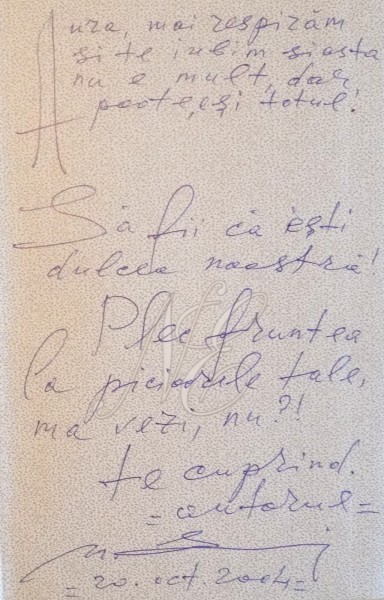 Aura, mai respirăm
și te iubim și asta
nu e mult, dar
poate, ești totul!
Să fii că ești
dulcea noastră!
Plec fruntea
la picioarele tale,
mă vezi, nu?!
te cuprind.
= autorul =
= 20. oct. 2004 =